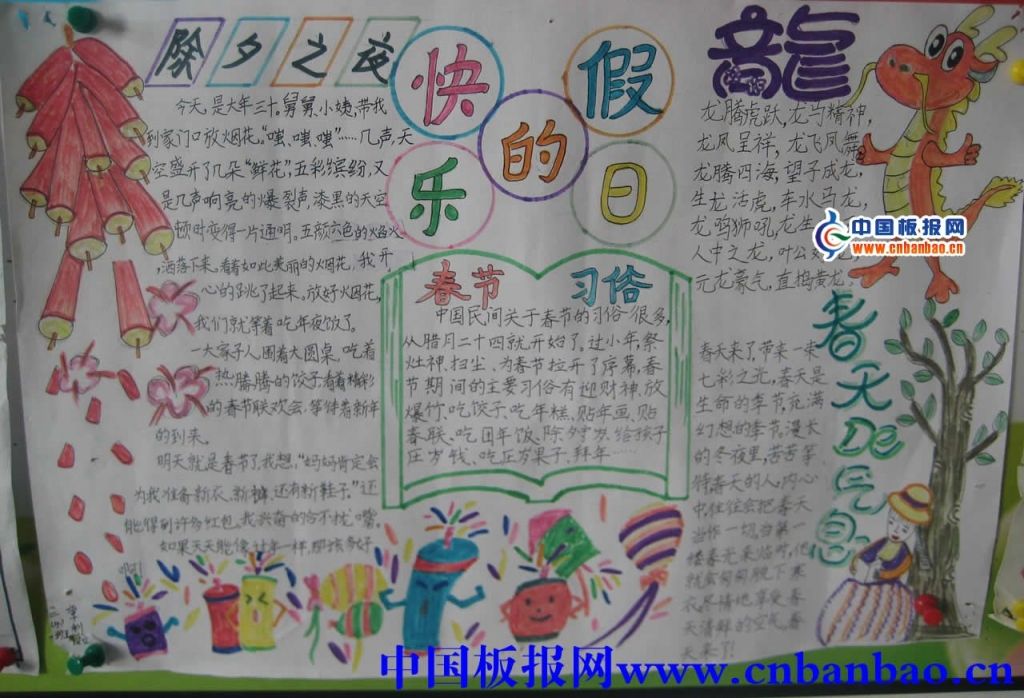 除夕之夜
今天,是大年三十。舅舅、小姨,带我
到家门口放烟花。“嗤、嗤、嗤”……几声,天
空盛开了几朵“鲜花”,五彩缤纷,又
是几声响亮的爆裂声,漆黑的天空
顿时变得一片通明。五颜六色的焰火
洒落下来,看着如此美丽的烟花,我开
心的跳了起来。放好烟花,
我们就等着吃年夜饭了。
一大家子人围着大圆桌,吃着
热腾腾的饺子看着精彩
的春节联欢会,等待着新年
的到来。
明天就是春节了,我想,“妈妈肯定会
为我准备新衣、新裤,还有新鞋子。”还
能得到许多红包,我兴奋的合不拢嘴。
如果天天能像过年一样,那该多好
啊!
快乐的假日
春节 习俗
中国民间关于春节的习俗很多,
从腊月二十四就开始了。过小年,祭
灶神、扫尘、为春节拉开了序幕,春
节期间的主要习俗有迎财神、放
爆竹、吃饺子、吃年糕、贴年画、贴
春联、吃团年饭、除夕守岁、给孩子
压岁钱、吃压岁果子、拜年……
龍
龙腾虎跃,龙马精神,
龙凤呈祥,龙飞凤舞
龙腾四海,望子成龙,
生龙活虎,车水马龙,
龙鸣狮吼,龙生
人中之龙,叶公
元龙豪气,直捣黄龙。
中国板报网
www.cnbanbao.cn
春天De气息
春天来了,带来一束
七彩之光,春天是
生命的季节,充满
幻想的季节。漫长
的冬夜里,苦苦等
待春天的人,内心
中往往会把春天
当作一切,当第一
缕春光来临时,他
就会匆匆脱下寒
衣尽情地享受春
天清鲜的空气。春
天来了!
中国板报网www.cnbanbao.cn